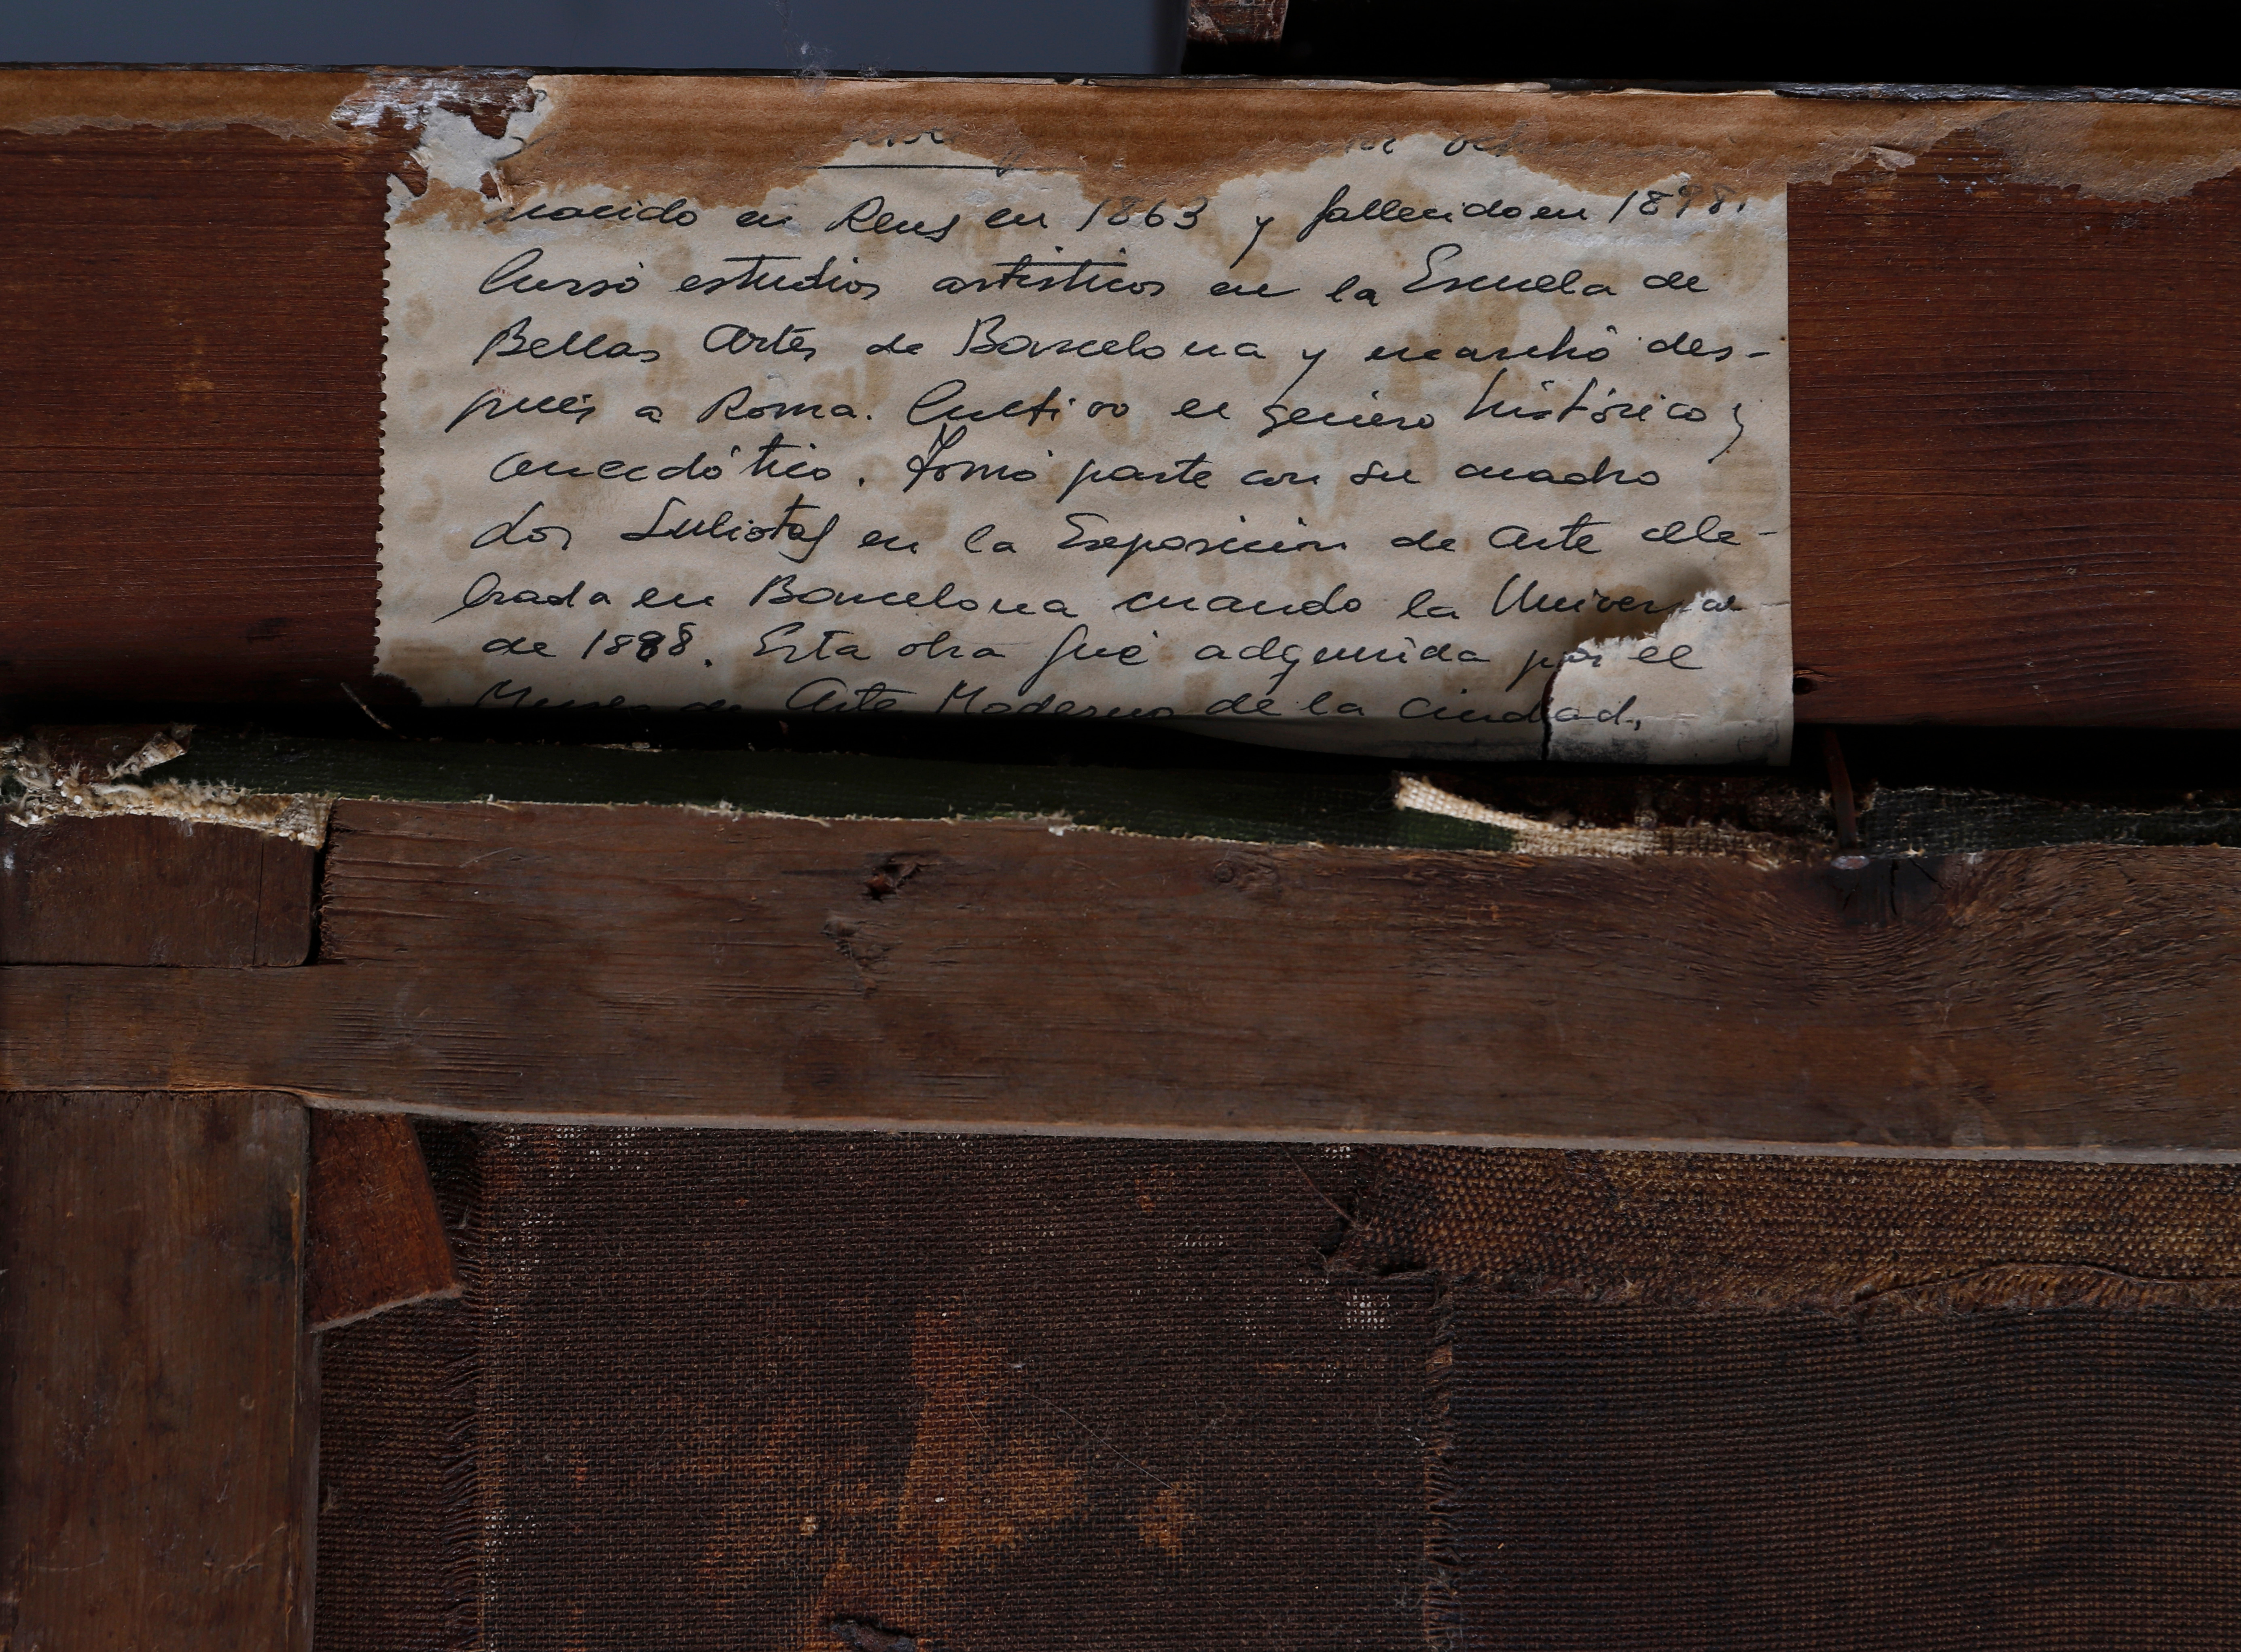 nacido en Reus en 1863 y fallecido en 1898.
Cursó estudios artísticos en la Escuela de
Bellas Artes de Barcelona y marchó des-
pués a Roma. Cultivo el género histórico y
anecdótico. Tomó parte con su cuadro
Los Lulistas en la Exposición de Arte cele-
brada en Barcelona cuando la Universal
de 1888. Esta obra fué adquirida por el
Museo de Arte Moderno de la Ciudad,